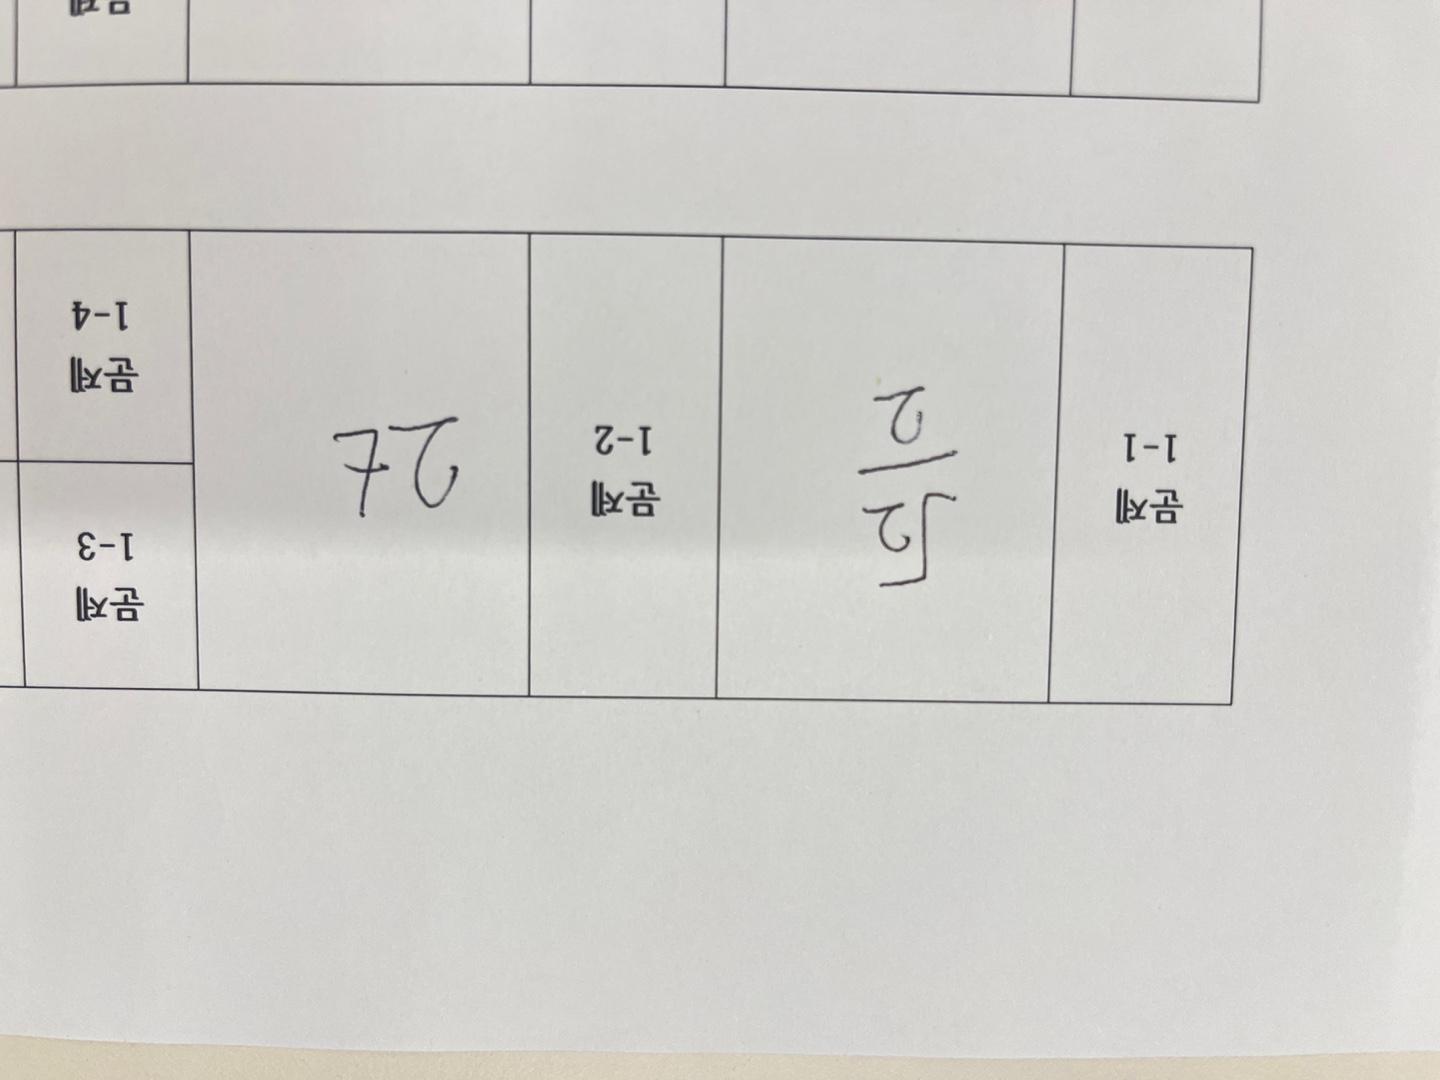 문제
1-1
√2
2
문제
1-2
2t
문제
1-3
문제
1-4